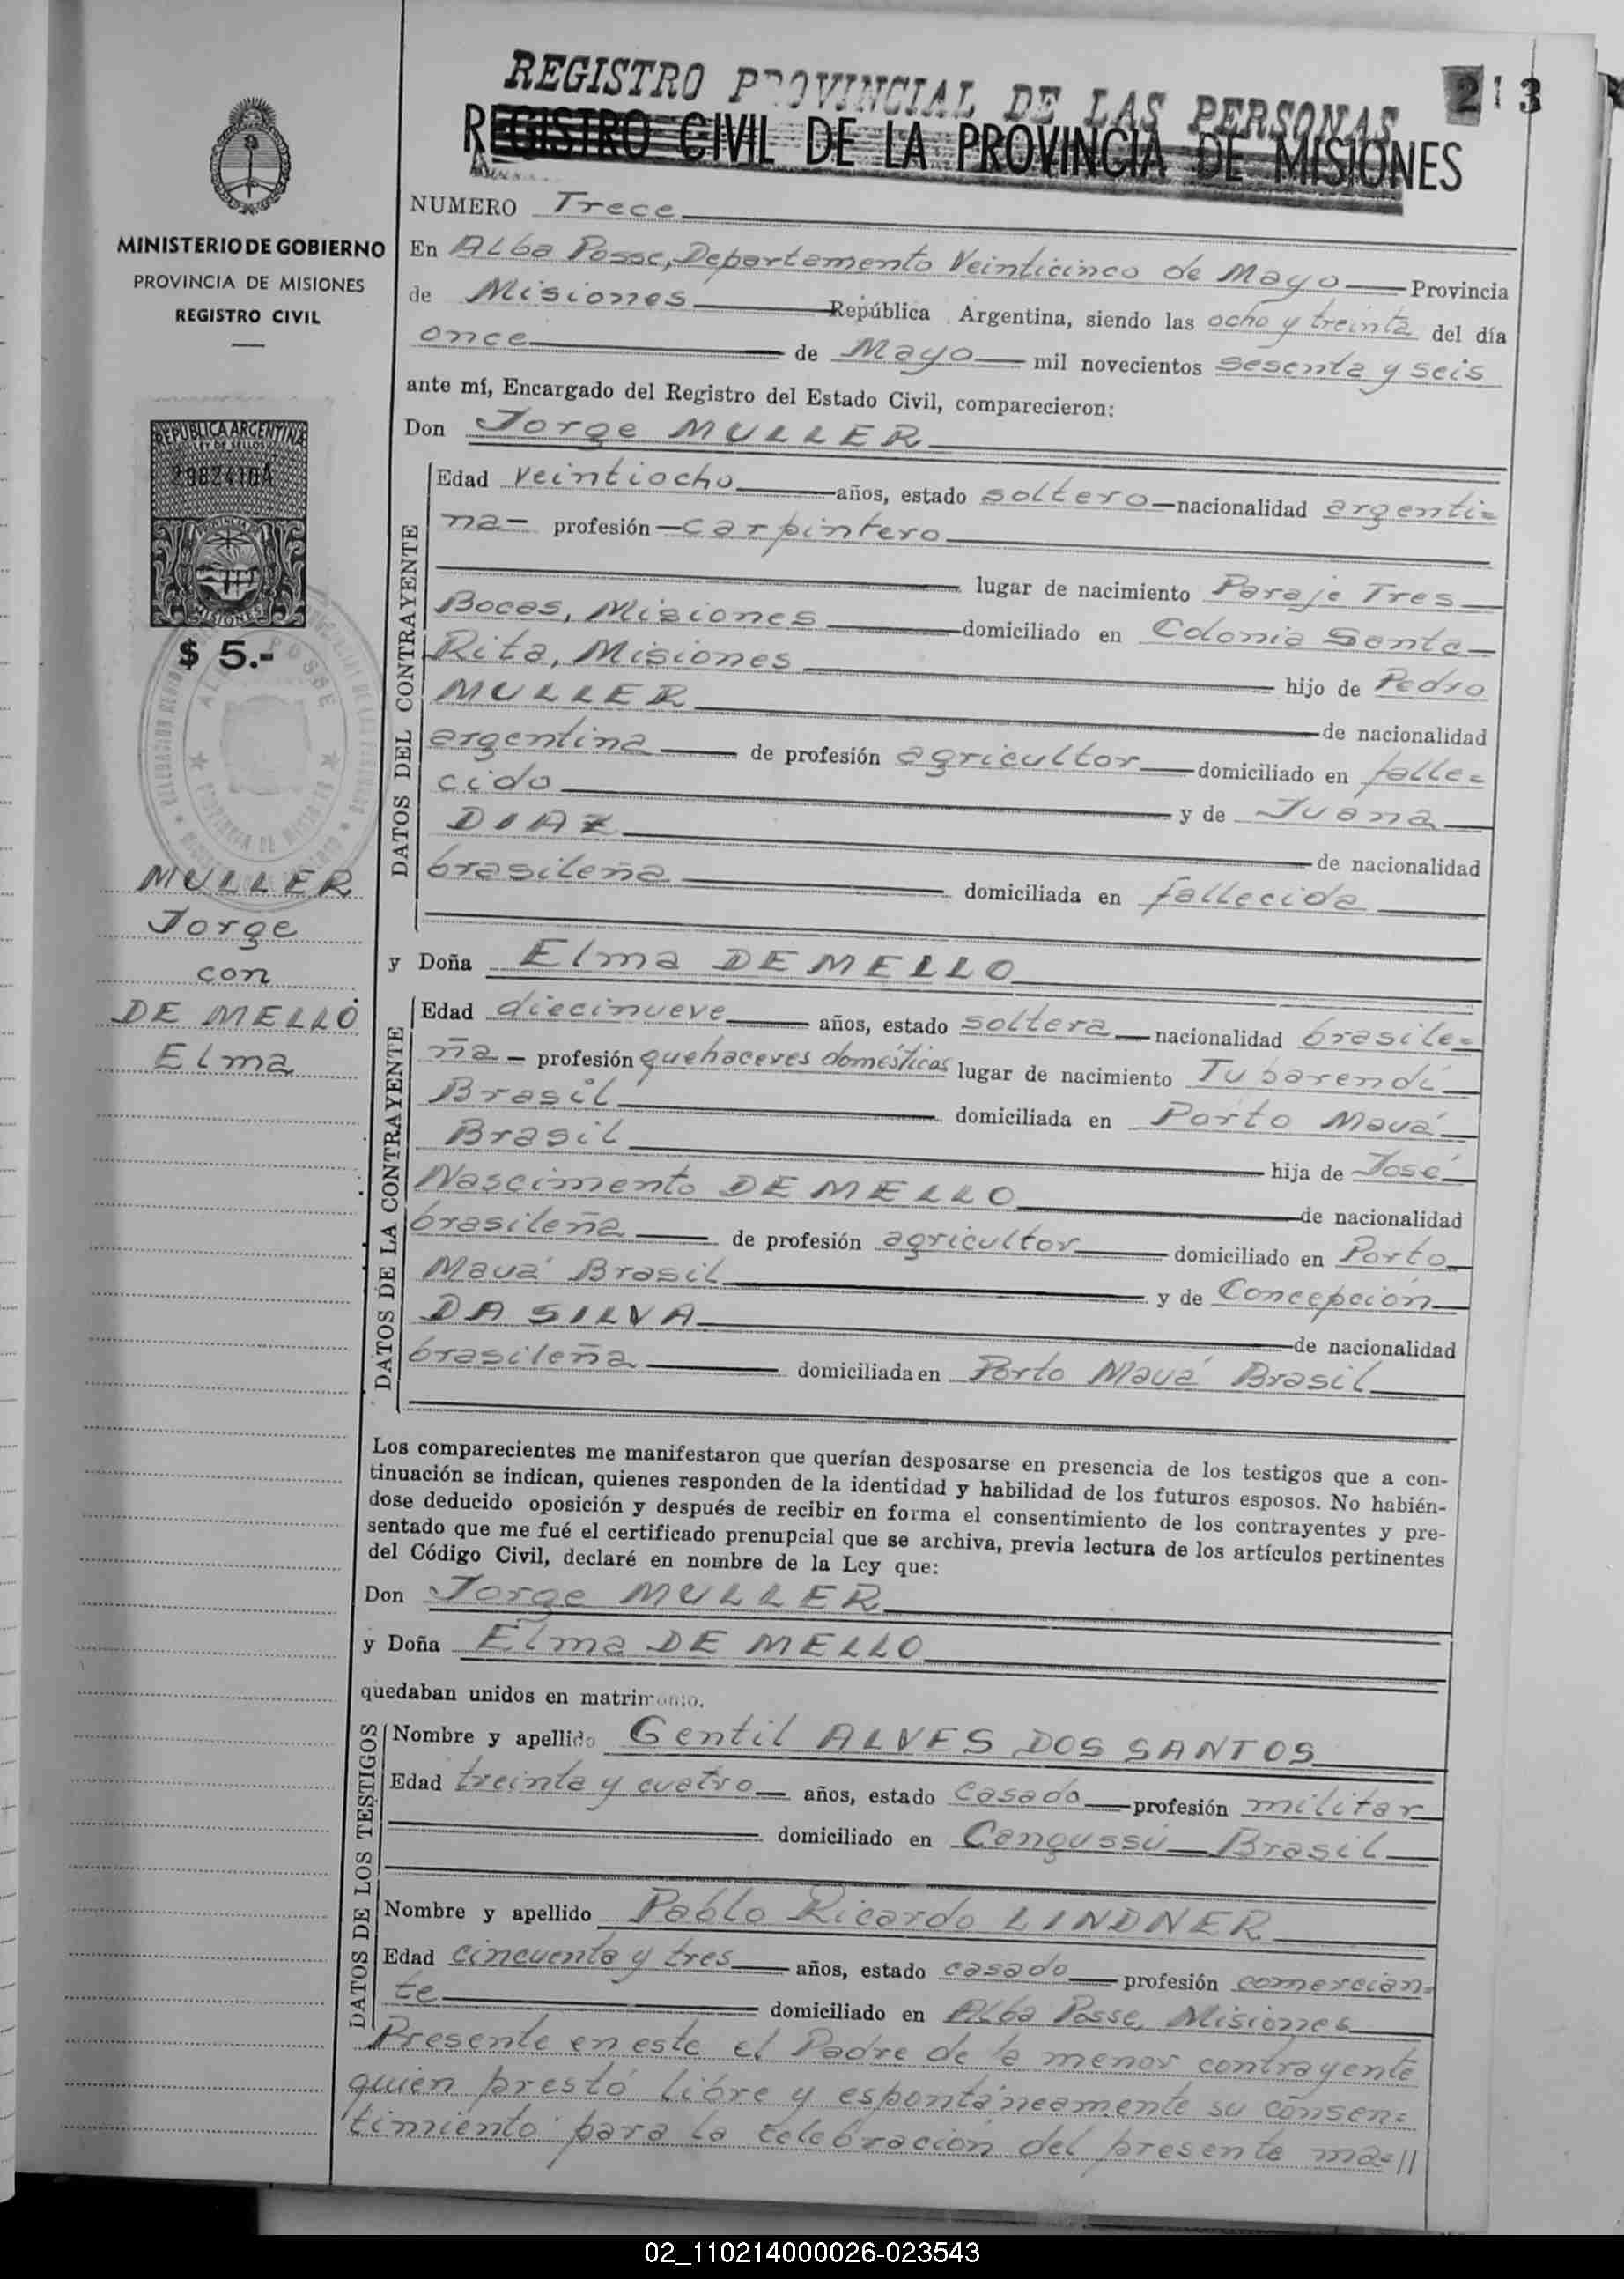 REGISTRO PROVINCIAL DE LAS PERSONAS
213
REGISTRO CIVIL DE LA PROVINCIA DE MISIONES
MINISTERIO DE GOBIERNO
PROVINCIA DE MISIONES
REGISTRO CIVIL
REPUBLICA ARGENTINA
LEY DE SELLOS
2982410A
MISIONES
$ 5.-
MULLER
Jorge
con
DE MELLO
Elma
NUMERO Trece
En Alba Posse, Departamento Veinticinco de Mayo Provincia
de Misiones República Argentina, siendo las ocho y treinta del día
once de Mayo mil novecientos sesenta y seis
ante mí, Encargado del Registro del Estado Civil, comparecieron:
Don Jorge MULLER
DATOS DEL CONTRAYENTE
Edad veintiocho años, estado soltero nacionalidad argenti=
na- profesión carpintero
lugar de nacimiento Paraje Tres
Bocas, Misiones domiciliado en Colonia Santa
Rita, Misiones hijo de Pedro
MULLER de nacionalidad
argentina de profesión agricultor domiciliado en falle=
cido y de Juana
DIAZ de nacionalidad
brasileña domiciliada en fallecida
y Doña Elma DE MELLO
DATOS DE LA CONTRAYENTE
Edad diecinueve años, estado soltera nacionalidad brasile=
ña - profesión quehaceres domésticos lugar de nacimiento Tubarendí
Brasil domiciliada en Porto Mauá
Brasil hija de José
Nascimento DE MELLO de nacionalidad
brasileña de profesión agricultor domiciliado en Porto
Mauá Brasil y de Concepción
DA SILVA de nacionalidad
brasileña domiciliada en Porto Mauá Brasil
Los comparecientes me manifestaron que querían desposarse en presencia de los testigos que a con-
tinuación se indican, quienes responden de la identidad y habilidad de los futuros esposos. No habién-
dose deducido oposición y después de recibir en forma el consentimiento de los contrayentes y pre-
sentado que me fué el certificado prenupcial que se archiva, previa lectura de los artículos pertinentes
del Código Civil, declaré en nombre de la Ley que:
Don Jorge MULLER
y Doña Elma DE MELLO
quedaban unidos en matrimonio.
DATOS DE LOS TESTIGOS
Nombre y apellido Gentil ALVES DOS SANTOS
Edad treinta y cuatro años, estado casado profesión militar
domiciliado en Cangussú Brasil
Nombre y apellido Pablo Ricardo LINDNER
Edad cincuenta y tres años, estado casado profesión comercian=
te domiciliado en Alba Posse, Misiones
Presente en este el Padre de la menor contrayente
quien prestó libre y espontáneamente su consen=
timiento para la celebración del presente ma=//
02_110214000026-023543